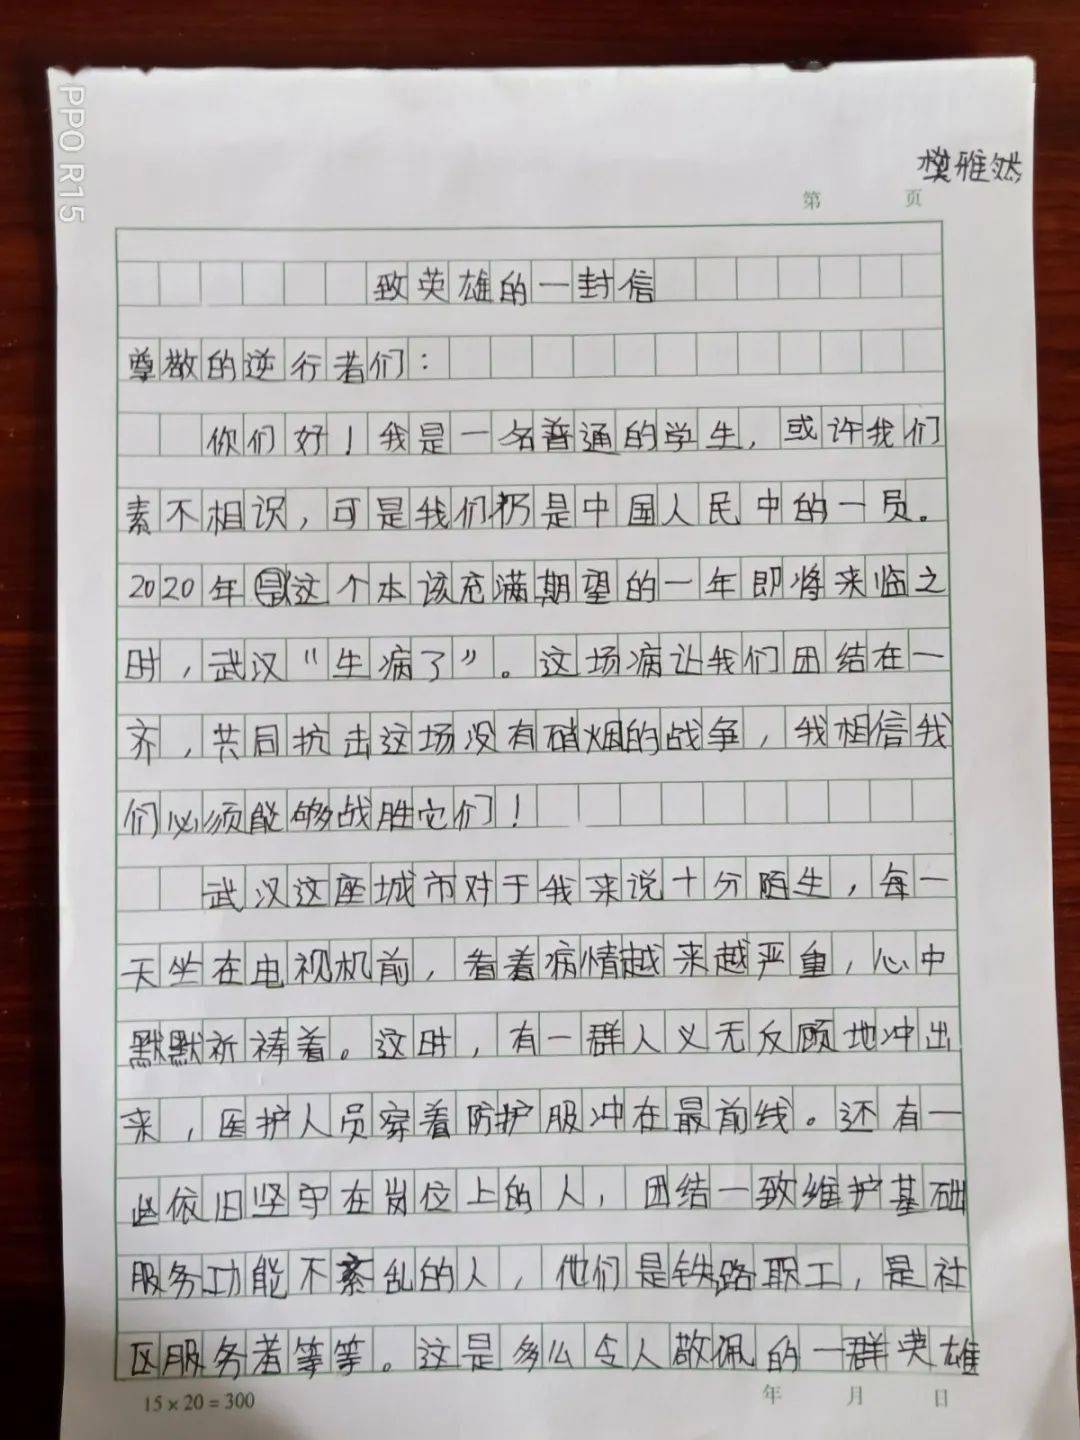 PPO R15
樊雅然
第 页
致英雄的一封信
尊敬的逆行者们：
你们好！我是一名普通的学生，或许我们
素不相识，可是我们扔是中国人民中的一员。
2020年这个本该充满期望的一年即将来临之
时，武汉“生病了”。这场病让我们团结在一
齐，共同抗击这场没有硝烟的战争，我相信我
们必须能够战胜它们！
武汉这座城市对于我来说十分陌生，每一
天坐在电视机前，看着病情越来越严重，心中
默默祈祷着。这时，有一群人义无反顾地冲出
来，医护人员穿着防护服冲在最前线。还有一
些依旧坚守在岗位上的人，团结一致维护基础
服务功能不紊乱的人，他们是铁路职工，是社
区服务者等等。这是多么令人敬佩的一群英雄
15×20=300 年 月 日